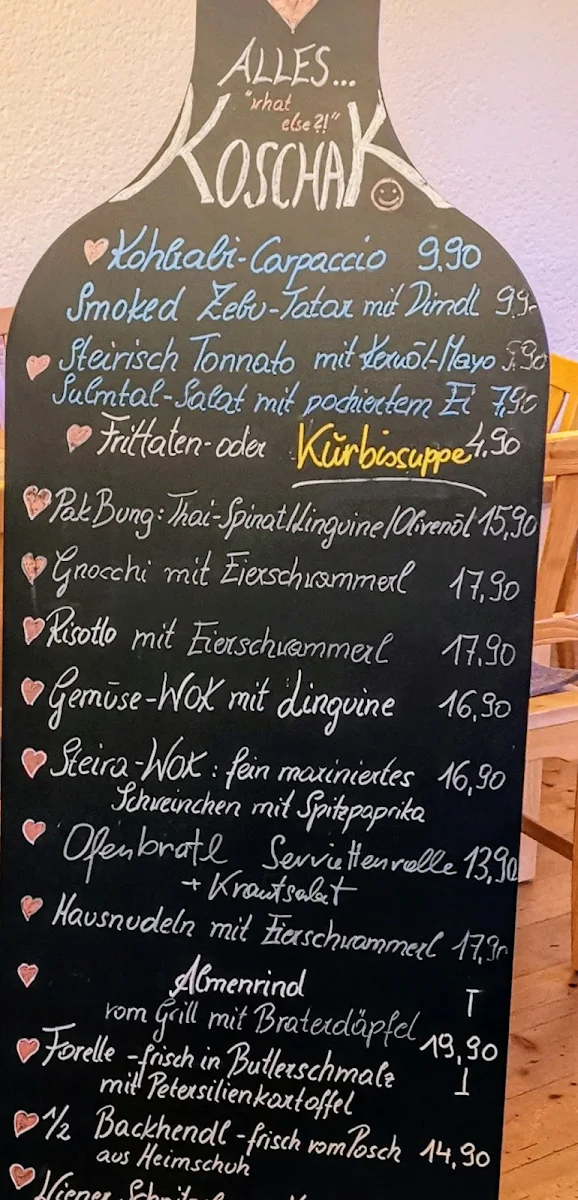 ALLES...
"what
else?!"
KOSCHAK
Kohlrabi-Carpaccio 9.90
Smoked Zebu-Tatar mit Dirndl 9,9-
Steirisch Tonnato mit Kernöl-Mayo 9,90
Sulmtal-Salat mit pochiertem Ei 7,90
Frittaten- oder Kürbissuppe 4.90
Pak Bung: Thai-Spinat/Linguine/Olivenöl 15,90
Gnocchi mit Eierschwammerl 17,90
Risotto mit Eierschwammerl 17,90
Gemüse-WOK mit Linguine 16,90
Steira-WOK: fein mariniertes 16,90
Schweinchen mit Spitzpaprika
Ofenbratl Serviettenrolle 13,90
+ Krautsalat
Hausnudeln mit Eierschwammerl 17,90
Almenrind
vom Grill mit Braterdäpfel
19,90
Forelle - frisch in Butterschmalz
mit Petersilienkartoffel
1/2 Backhendl - frisch vom Posch 14,90
aus Heimschuh
Wiener Schnitzel